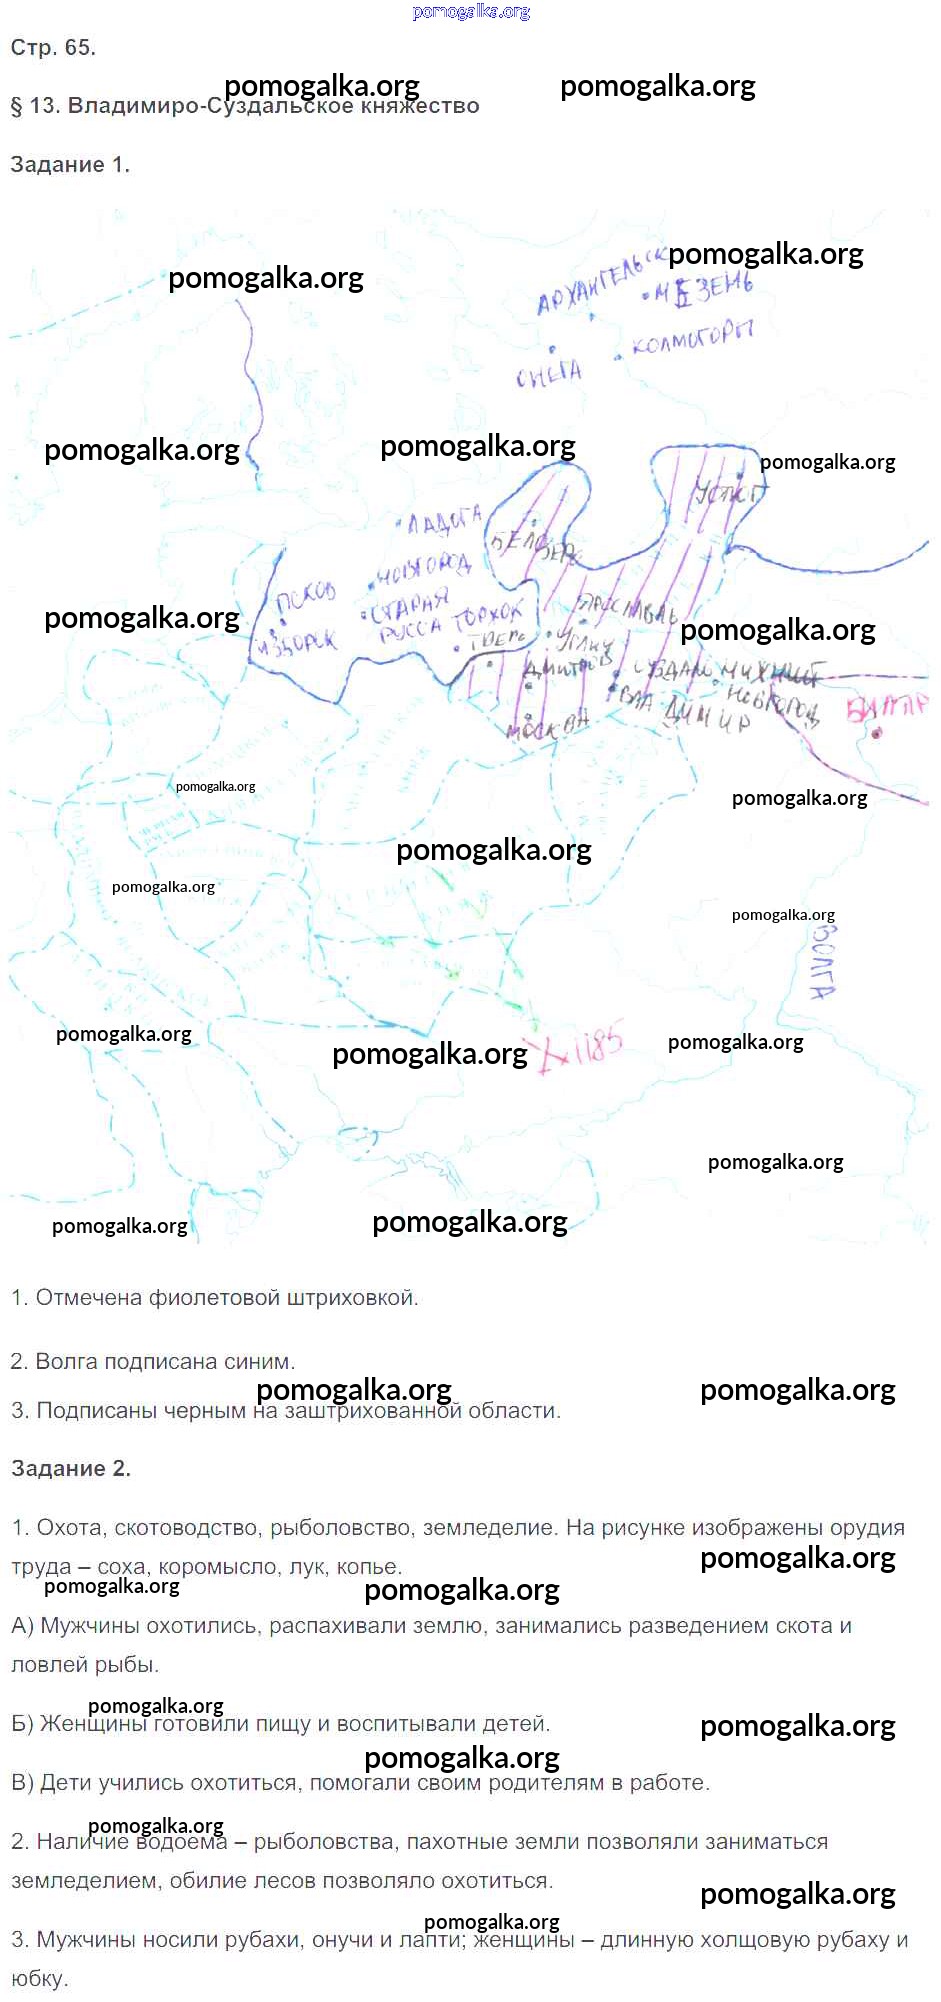 pomogalka.org
Стр. 65.
pomogalka.org pomogalka.org
§ 13. Владимиро-Суздальское княжество
Задание 1.
pomogalka.org
pomogalka.org
АРХАНГЕЛЬСК
МЕЗЕНЬ
КОЛМОГОРЫ
ОНЕГА
pomogalka.org pomogalka.org pomogalka.org
УСТЮГ
ЛАДОГА
БЕЛОЗЕРС
НОВГОРОД
ПСКОВ
СТАРАЯ
РУССА ТОРЖОК
pomogalka.org
ЯРОСЛАВЛЬ
pomogalka.org
ИЗБОРСК
ТВЕРЬ
УГЛИЧ
ДМИТРОВ
СУЗДАЛЬ НИЖНИЙ
НОВГОРОД
ВЛАДИМИР
МОСКВА
pomogalka.org
pomogalka.org
pomogalka.org
pomogalka.org
pomogalka.org
ВОЛГА
pomogalka.org
pomogalka.org
1185
pomogalka.org
pomogalka.org
pomogalka.org
pomogalka.org
1. Отмечена фиолетовой штриховкой.
2. Волга подписана синим.
pomogalka.org pomogalka.org
3. Подписаны черным на заштрихованной области.
Задание 2.
1. Охота, скотоводство, рыболовство, земледелие. На рисунке изображены орудия
pomogalka.org
труда – соха, коромысло, лук, копье.
pomogalka.org pomogalka.org
А) Мужчины охотились, распахивали землю, занимались разведением скота и
ловлей рыбы.
pomogalka.org
Б) Женщины готовили пищу и воспитывали детей.
pomogalka.org
pomogalka.org
В) Дети учились охотиться, помогали своим родителям в работе.
pomogalka.org
2. Наличие водоема – рыболовства, пахотные земли позволяли заниматься
земледелием, обилие лесов позволяло охотиться.
pomogalka.org
pomogalka.org
3. Мужчины носили рубахи, онучи и лапти; женщины – длинную холщовую рубаху и
юбку.